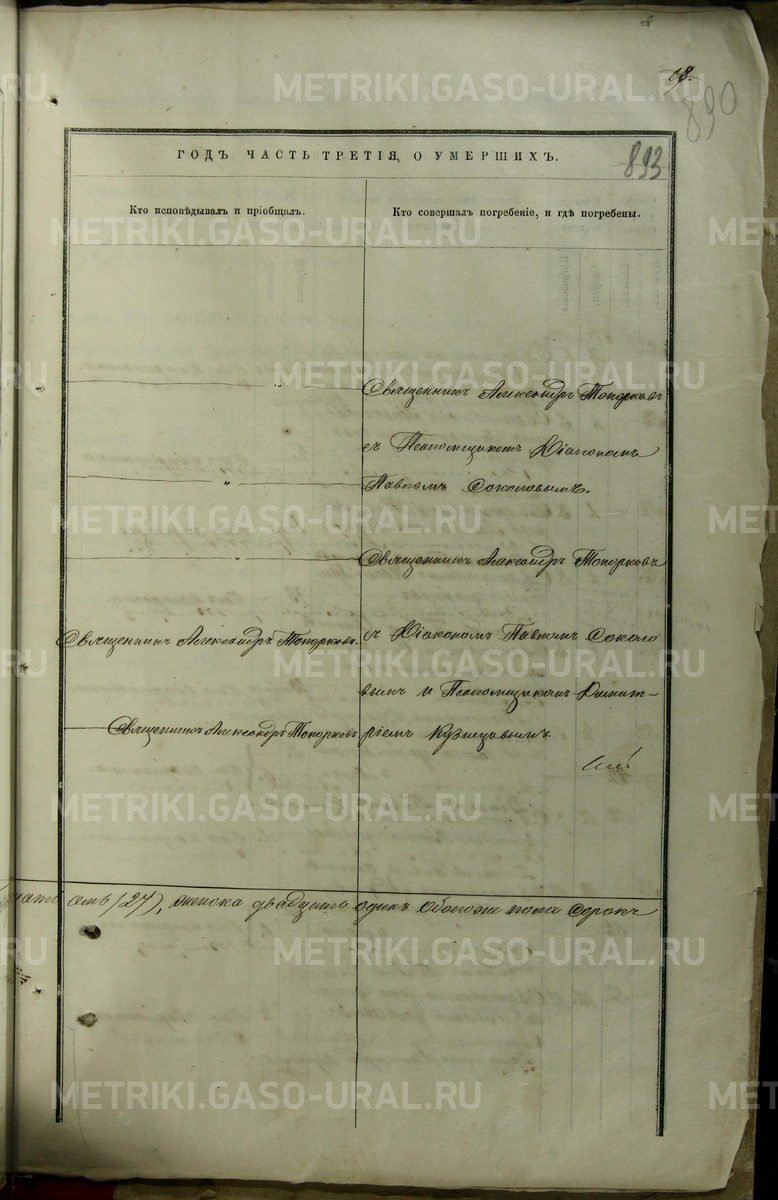 18.
890
893
ГОДЪ ЧАСТЬ ТРЕТІЯ, О УМЕРШИХЪ.
Кто исповѣдывалъ и пріобщалъ.
Кто совершалъ погребеніе, и гдѣ погребены.
Священникъ Александръ Топорковъ
съ Псаломщикомъ Діакономъ
Павломъ Соколовымъ.
Священникъ Александръ Топорковъ
Священникъ Александръ Топорковъ.
съ Діакономъ Павломъ Соколо
вымъ и Псаломщикомъ Димит-
Священникъ Александръ Топорковъ
ріемъ Кузнецовымъ
семь (27), женска двадцать одинъ обоегоже пола сорокъ
METRIKI.GASO-URAL.RU
METRIKI.GASO-URAL.RU
METRIKI.GASO-URAL.RU
METRIKI.GASO-URAL.RU
METRIKI.GASO-URAL.RU
METRIKI.GASO-URAL.RU
METRIKI.GASO-URAL.RU
METRIKI.GASO-URAL.RU